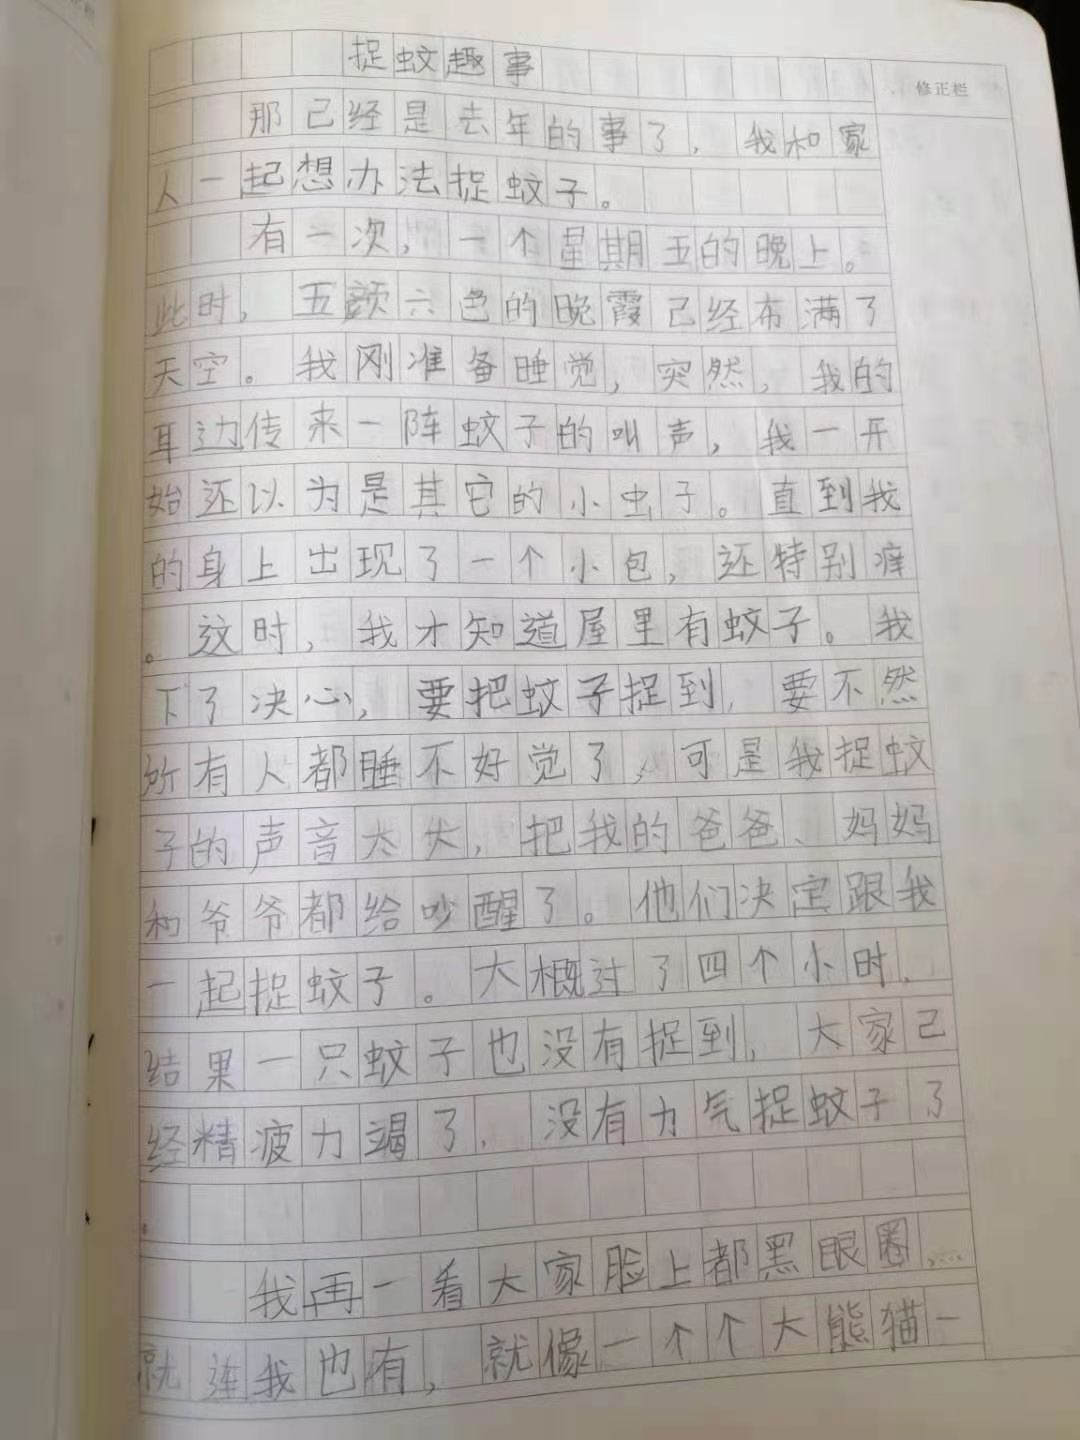 捉蚊趣事
修正栏
那已经是去年的事了，我和家
人一起想办法捉蚊子。
有一次，一个星期五的晚上。
此时，五颜六色的晚霞已经布满了
天空。我刚准备睡觉，突然，我的
耳边传来一阵蚊子的叫声，我一开
始还以为是其它的小虫子。直到我
的身上出现了一个小包，还特别痒
。这时，我才知道屋里有蚊子。我
下了决心，要把蚊子捉到，要不然
所有人都睡不好觉了，可是我捉蚊
子的声音太大，把我的爸爸、妈妈
和爷爷都给吵醒了。他们决定跟我
一起捉蚊子。大概过了四个小时，
结果一只蚊子也没有捉到，大家已
经精疲力竭了，没有力气捉蚊子了
。
我再一看大家脸上都黑眼圈，…
就连我也有，就像一个个大熊猫一